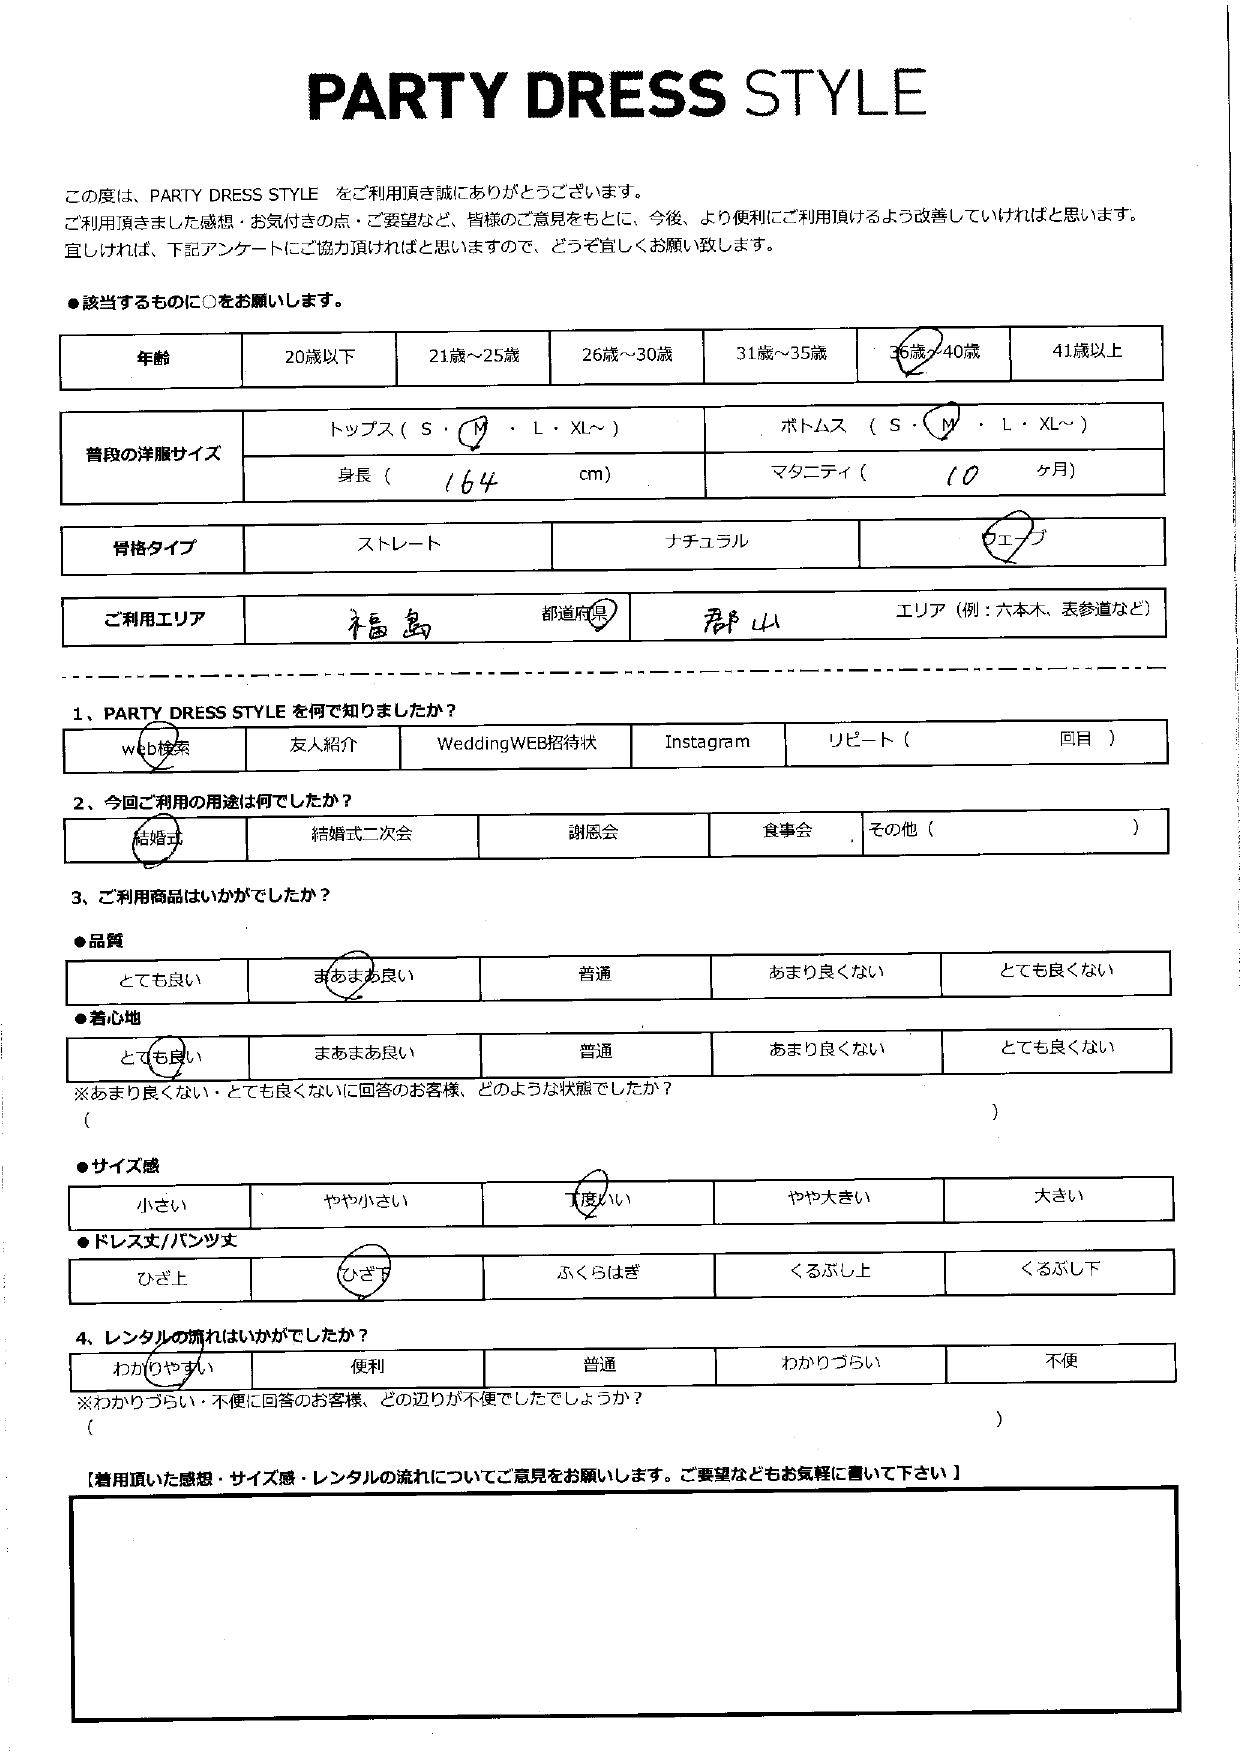 PARTY DRESS STYLE
この度は、PARTY DRESS STYLE をご利用頂き誠にありがとうございます。
ご利用頂きました感想・お気付きの点・ご要望など、皆様のご意見をもとに、今後、より便利にご利用頂けるよう改善していければと思います。
宜しければ、下記アンケートにご協力頂ければと思いますので、どうぞ宜しくお願い致します。
●該当するものに○をお願いします。
年齢 20歳以下 21歳～25歳 26歳～30歳 31歳～35歳 36歳～40歳 41歳以上
普段の洋服サイズ
トップス ( S ・ M ・ L ・ XL～ ) ボトムス ( S ・ M ・ L ・ XL～ )
身長 ( 164 cm) マタニティ ( 10 ヶ月)
骨格タイプ ストレート ナチュラル ウェーブ
ご利用エリア 福島 都道府県 郡山 エリア (例：六本木、表参道など)
1、PARTY DRESS STYLE を何で知りましたか？
web検索 友人紹介 WeddingWEB招待状 Instagram リピート ( 回目 )
2、今回ご利用の用途は何でしたか？
結婚式 結婚式二次会 謝恩会 食事会 その他 ( )
3、ご利用商品はいかがでしたか？
●品質
とても良い まあまあ良い 普通 あまり良くない とても良くない
●着心地
とても良い まあまあ良い 普通 あまり良くない とても良くない
※あまり良くない・とても良くないに回答のお客様、どのような状態でしたか？
( )
●サイズ感
小さい やや小さい 丁度いい やや大きい 大きい
●ドレス丈/パンツ丈
ひざ上 ひざ下 ふくらはぎ くるぶし上 くるぶし下
4、レンタルの流れはいかがでしたか？
わかりやすい 便利 普通 わかりづらい 不便
※わかりづらい・不便に回答のお客様、どの辺りが不便でしたでしょうか？
( )
【着用頂いた感想・サイズ感・レンタルの流れについてご意見をお願いします。ご要望などもお気軽に書いて下さい 】